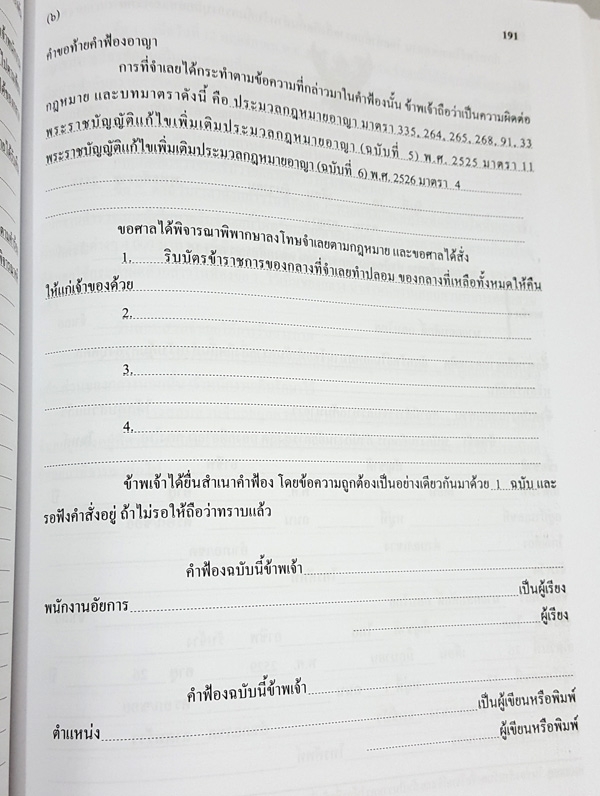 (b)
191
คำขอท้ายคำฟ้องอาญา
การที่จำเลยได้กระทำตามข้อความที่กล่าวมาในคำฟ้องนั้น ข้าพเจ้าถือว่าเป็นความผิดต่อ
กฎหมาย และบทมาตราดังนี้ คือ ประมวลกฎหมายอาญา มาตรา 335, 264, 265, 268, 91, 33
พระราชบัญญัติแก้ไขเพิ่มเติมประมวลกฎหมายอาญา (ฉบับที่ 5) พ.ศ. 2525 มาตรา 11
พระราชบัญญัติแก้ไขเพิ่มเติมประมวลกฎหมายอาญา (ฉบับที่ 6) พ.ศ. 2526 มาตรา 4
ขอศาลได้พิจารณาพิพากษาลงโทษจำเลยตามกฎหมาย และขอศาลได้สั่ง
1. ริบบัตรข้าราชการของกลางที่จำเลยทำปลอม ของกลางที่เหลือทั้งหมดให้คืน
ให้แก่เจ้าของด้วย
2.
3.
4.
ข้าพเจ้าได้ยื่นสำเนาคำฟ้อง โดยข้อความถูกต้องเป็นอย่างเดียวกันมาด้วย 1 ฉบับ และ
รอฟังคำสั่งอยู่ ถ้าไม่รอให้ถือว่าทราบแล้ว
คำฟ้องฉบับนี้ข้าพเจ้า
พนักงานอัยการ เป็นผู้เรียง
ผู้เรียง
คำฟ้องฉบับนี้ข้าพเจ้า
ตำแหน่ง เป็นผู้เขียนหรือพิมพ์
ผู้เขียนหรือพิมพ์